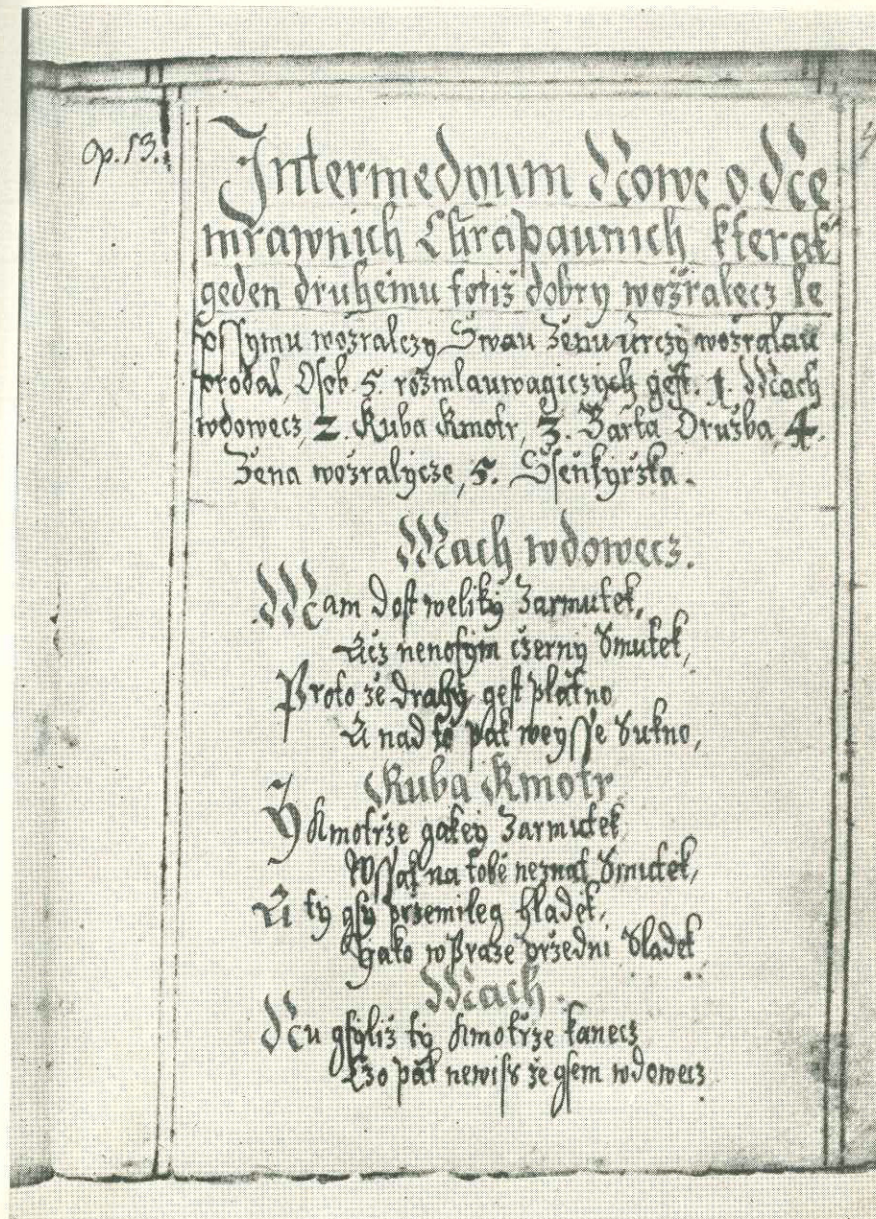 Op. 13.
Intermedyum Nowe o Ne
mrawnich Chrapaunich kterak
geden druhému totiž dobry wožralecz le
pssymu wožralczy Swau ženu urczy wožralau
prodal, Osob 5. rozmlauwagiczych gest. 1. Mach
wdowecz, 2. Kuba Kmotr, 3. Barta Družba, 4.
Žena wožralycze, 5. Ssenkyržka.
Mach wdowecz.
Mam dost weliky Zarmutek,
Acz nenosym czerny Smutek,
Proto že drahy gest platno
A nad to pak weysse Sukno,
Kuba Kmotr
Y Kmotrze gakey Zarmutek
Wssak na tobě neznat Smutek,
A ty gsy przemileg hladek,
Gako w Praze przedni Sladek
Mach.
Nu gsyliž ty Kmotrze tanecz
Czo pak newiss že gsem wdowecz